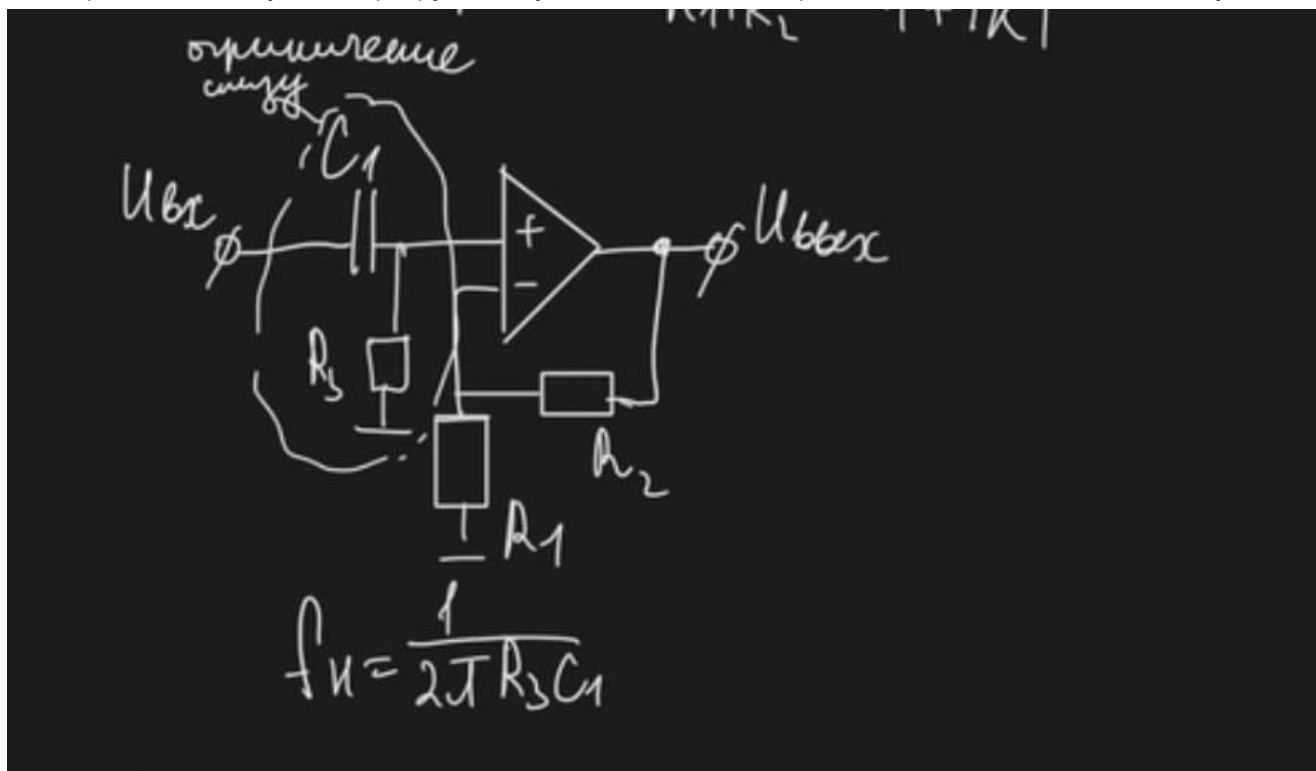 ограничение
снизу
C1
Uвх
+
Uвых
-
R3
R2
R1
fн = 1 / 2π R3 C1